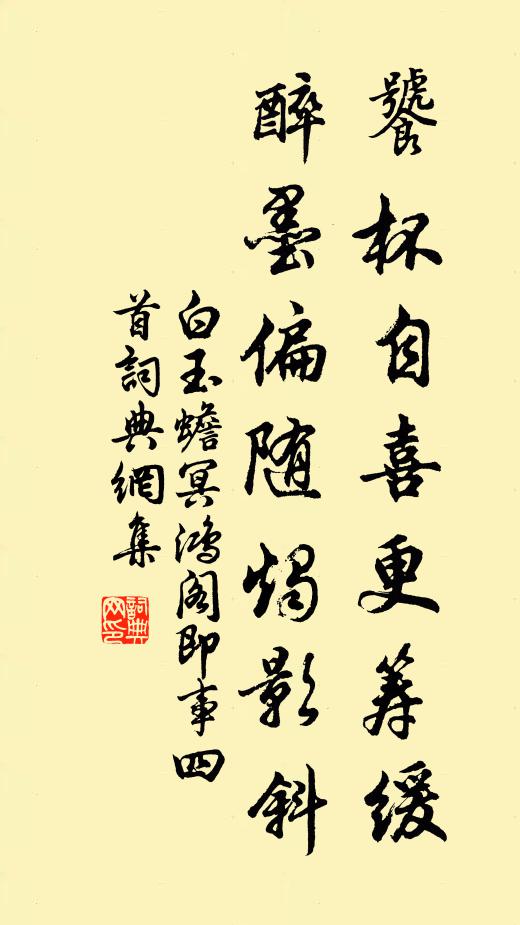 饕杯自喜更筹缓
醉墨偏随烛影斜
白玉蟾冥鸿阁即事四
首词典網集
詞典
网印